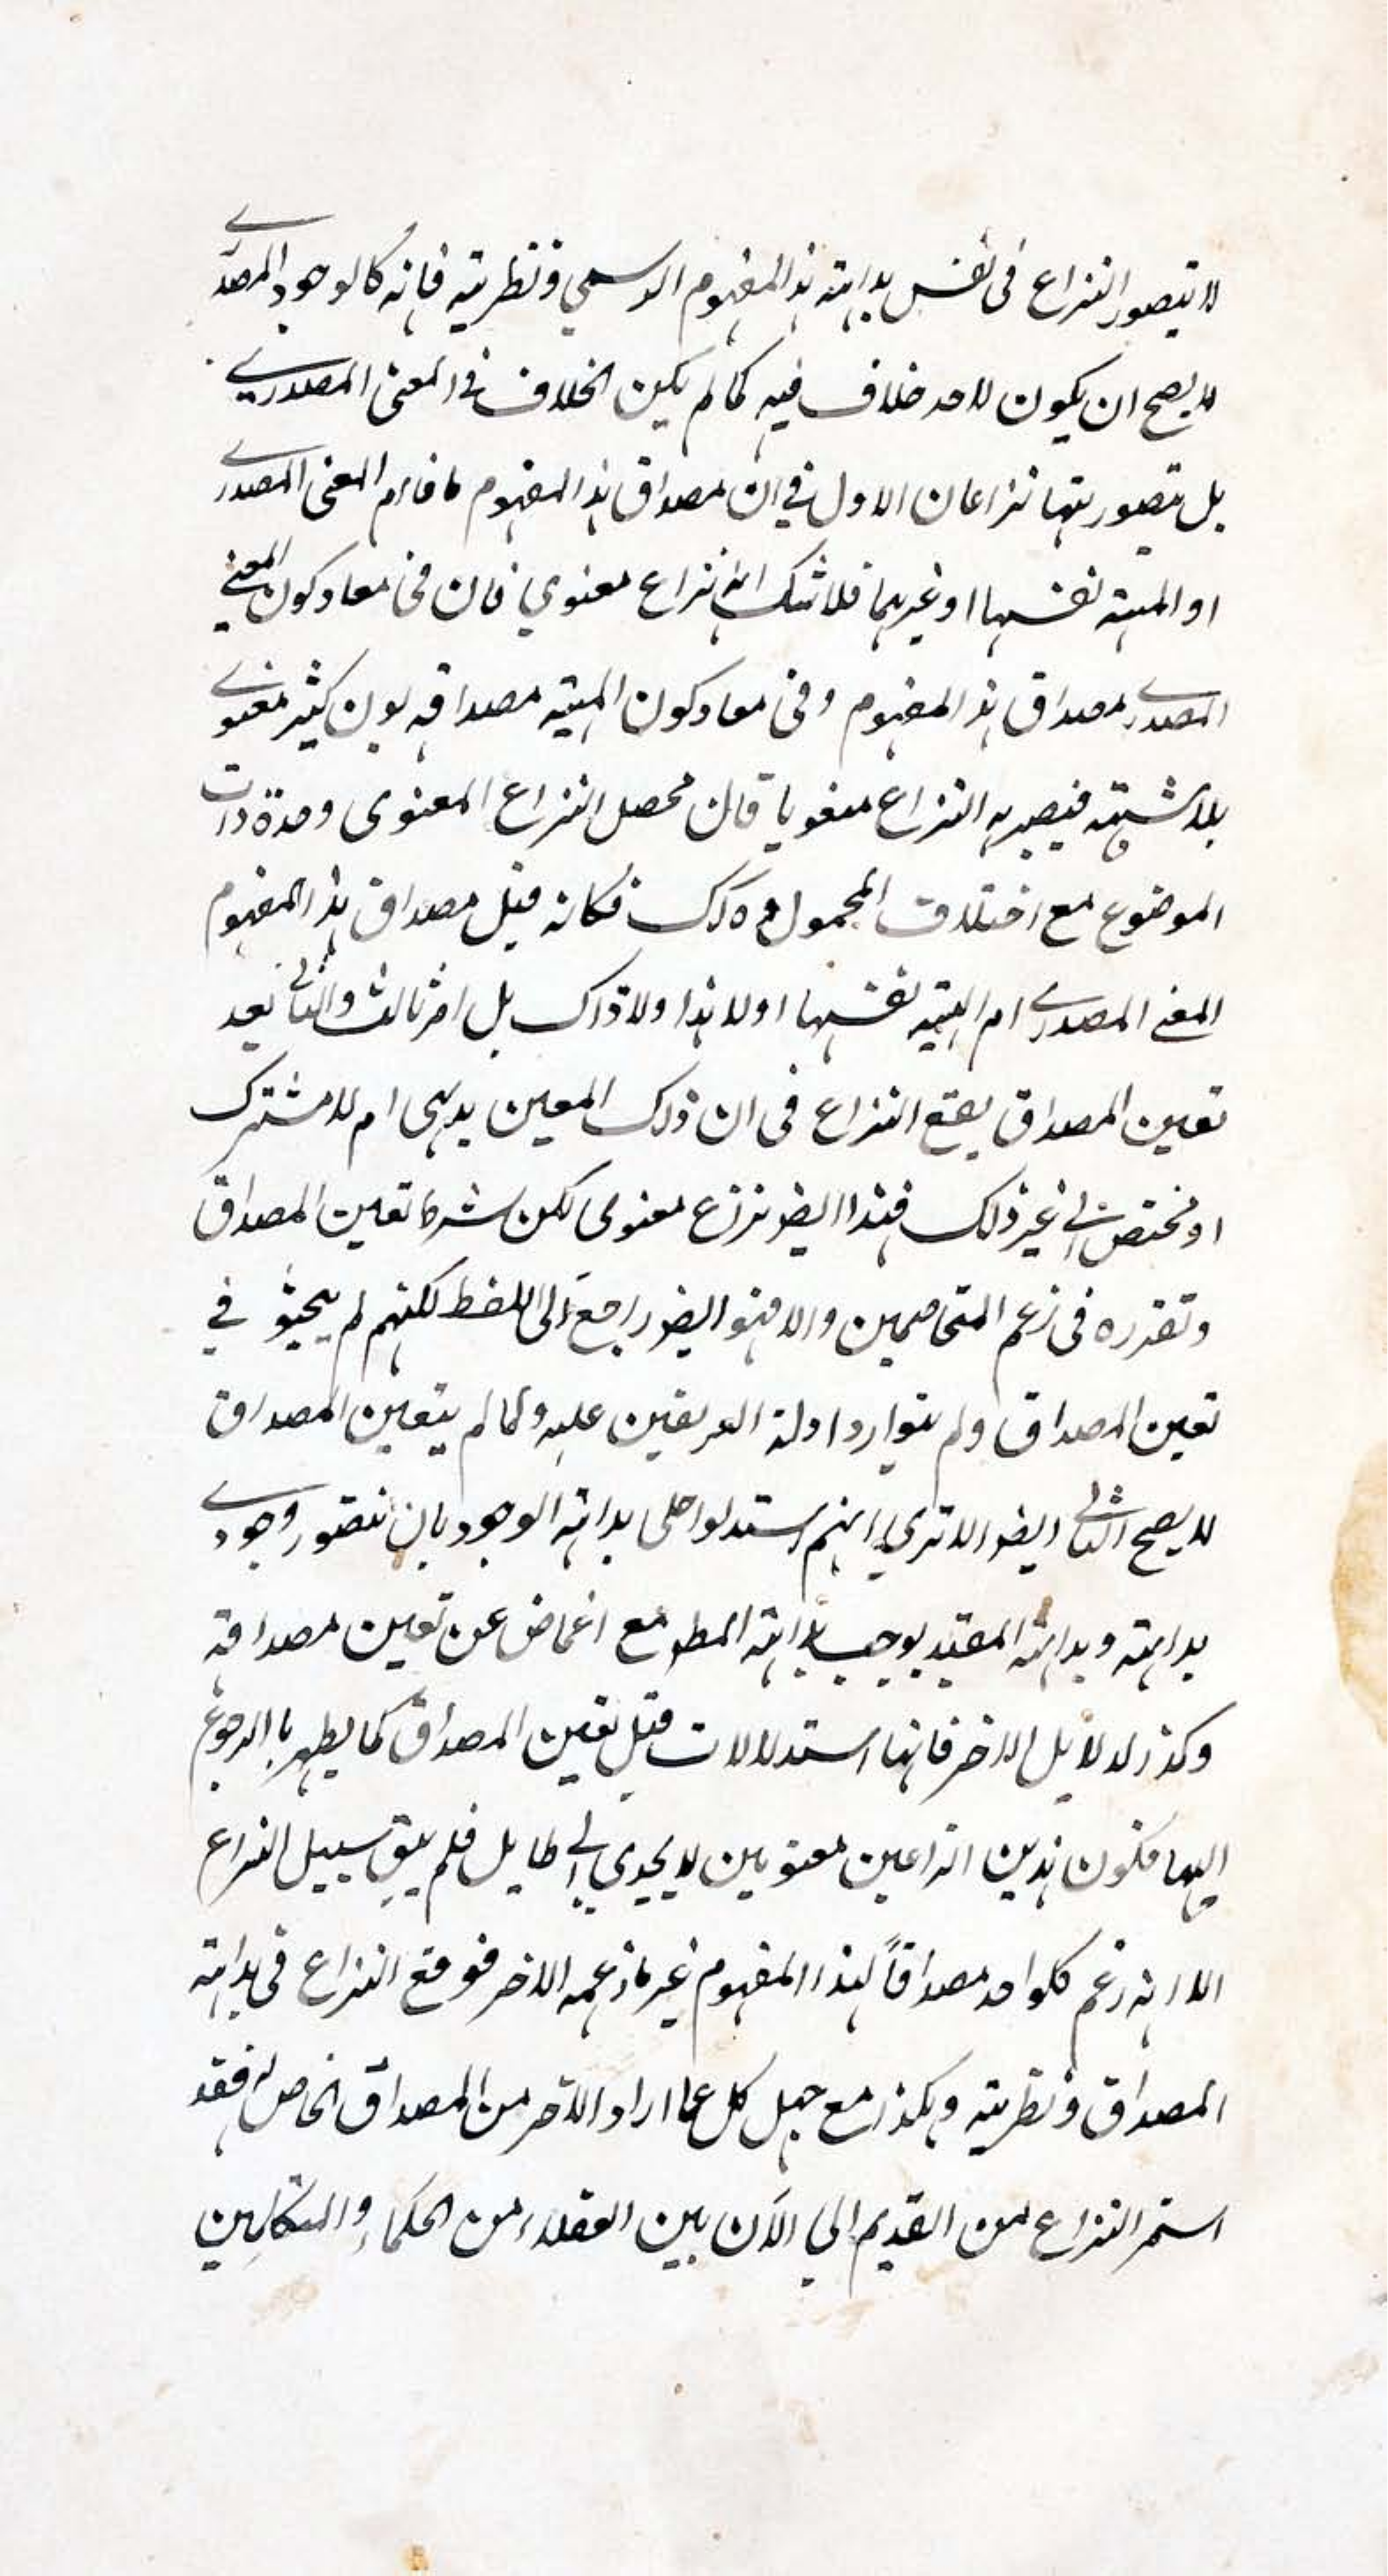 لا يتصور النزاع فى نفس بداهته هذا المفهوم الرسمي ونظريته فانه كالوجود المصدرے
لا يصح ان يكون لاحد خلاف فيه كما لم يكن الخلاف في المعنى المصدرے
بل يتصور ههنا نزاعان الاول في ان مصداق هذا المفهوم المعنى المصدرے
او المهية نفسها او غيرهما فلا شك انه نزاع معنوي فان فى مفاد كون المعنے
المصدرے مصداق هذا المفهوم وفى مفاد كون المهية مصداقه بون كثير معنوے
بلا شبهته فيصير به النزاع معنويا فان محصل النزاع المعنوى وحدة ذات
الموضوع مع اختلاف المحمول كذلك فكانه قيل مصداق هذا المفهوم
المعنے المصدرے ام المهية نفسها او لا هذا ولا ذاك بل امر ثالث والثانى بعد
تعين المصداق يقع النزاع فى ان ذلك المعين بديهى ام لا مشترك
او مختص الى غير ذلك فهذا ايضو نزاع معنوى لكن شرط تعين المصداق
وتقرره فى زعم المتخاصمين والا فهو ايضو راجع الى اللفظ لكنهم لم يبحثو في
تعين المصداق ولم يتوارد ادلة الفريقين عليه ولما لم يتعين المصداق
لا يصح الثانى ايضو الا ترى انهم استدلوا على بداهته الوجود بان نتصور وجودے
بداهته وبداهته المقيد يوجب بداهته المطو مع اغماض عن تعين مصداقه
وكذا لدلايل الاخر فانها استدلالات قبل تعين المصداق كما يظهر با الرجوع
اليها فكون هذين النزاعين معنويين لا يجدي الى طايل فلم يبق سبيل النزاع
الا انه زعم كلواحد مصداقاً لهذا المفهوم غير ما زعمه الاخر فوقع النزاع فى بداهته
المصداق ونظريته وهكذا مع جهل كل عما اراد الآخر من المصداق الخاص له فقد
استمر النزاع من القديم الي الآن بين العقلاء من الحكماء والمتكلمين